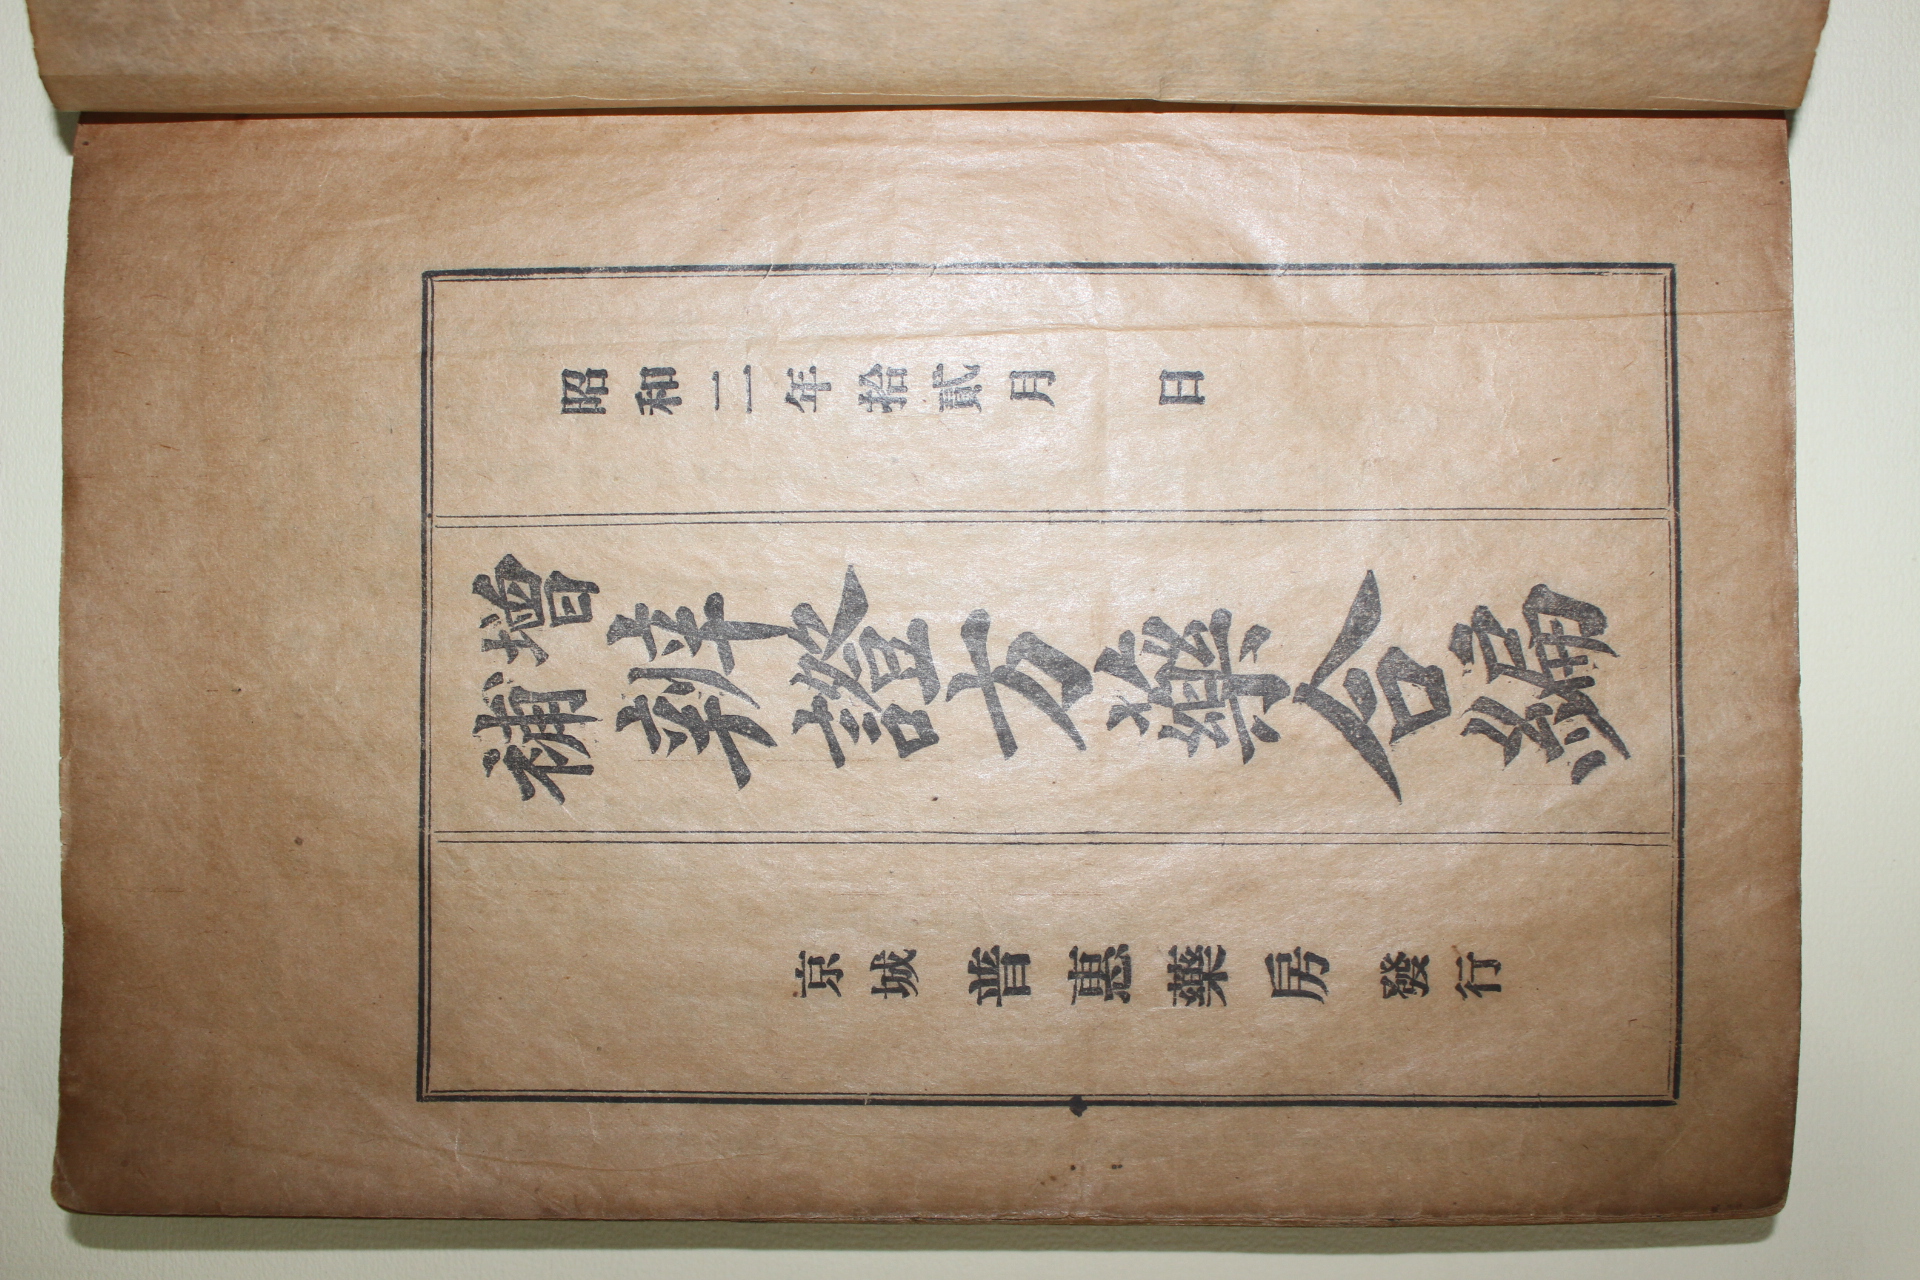 昭和二年拾貳月 日
增補辨證方藥合編
京城普惠藥房發行